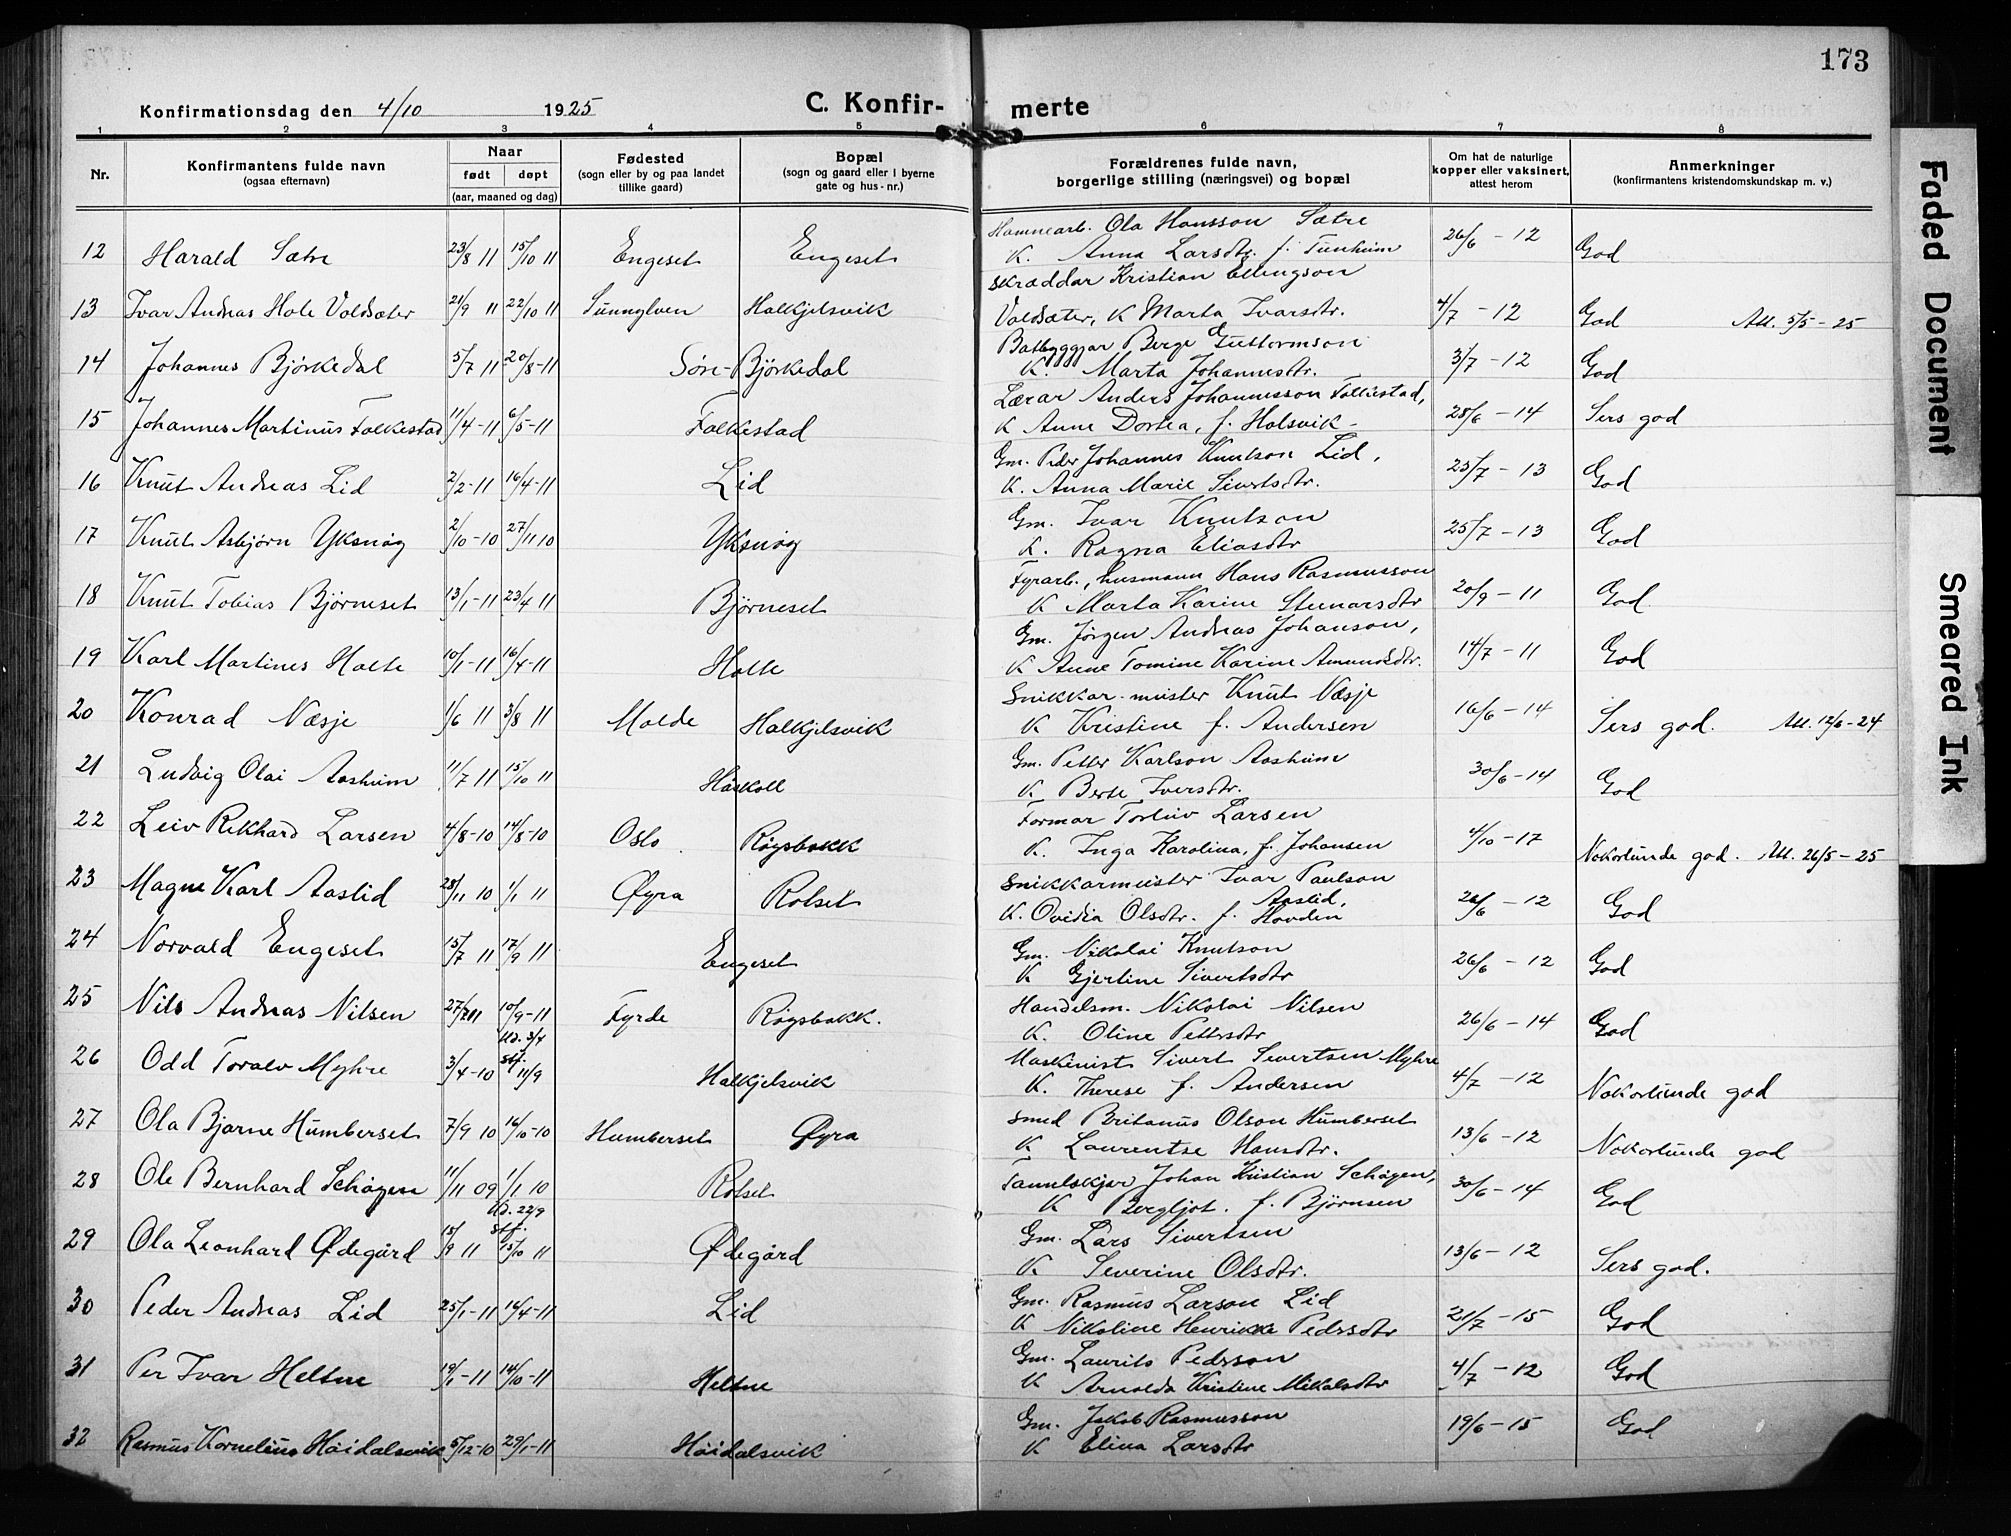 173
Konfirmationsdag den 4/10 1925 C. Konfir- merte
1 2 3 4 5 6 7 8
Nr. Konfirmantens fulde navn (ogsaa efternavn) Naar født døpt (aar, maaned og dag) Fødested (sogn eller by og paa landet tillike gaard) Bopæl (sogn og gaard eller i byerne gate og hus-nr.) Forældrenes fulde navn, borgerlige stilling (næringsvei) og bopæl Om hat de naturlige kopper eller vaksinert, attest herom Anmerkninger (konfirmantens kristendomskundskap m. v.)
12 Harald Sætre 23/8 11 15/10 11 Engeset Engeset Hamnearb. Ola Hansson Sætre
K. Anna Larsdtr. f. Tunheim 26/6 - 12 God
13 Ivar Andreas Hole Voldsæter 21/9 11 22/10 11 Sunnylven Halkjelsvik Skræddar Kristian Ellingson
Voldsæter, K Marta Ivarsdtr. 4/7 - 12 God Att. 5/5 - 25
14 Johannes Bjørkedal 5/7 11 20/8-11 Søre-Björkedal Båtbyggjar Berge Guttormson
K. Marta Johannesdtr. 3/7 - 12 God
15 Johannes Martinus Folkestad 11/4-11 6/5-11 Folkestad Lærar Anders Johannesson Folkestad,
K Anne Dortea, f. Holsvik - 28/6 - 14 Sers god
16 Knut Andreas Lid 2/2-11 16/4-11 Lid Gm. Peder Johannes Knutson Lid,
K. Anna Marie Sivertsdtr. 25/7 - 13 God
17 Knut Asbjørn Yksnøy 2/10-10 27/11 10 Yksnøy Gm. Ivar Knutson
K. Ragna Eliasdtr 25/7 - 13 God
18 Knut Tobias Bjørneset 13/1-11 23/4 11 Bjørneset Fyrarb., husmann Hans Rasmusson
K Marta Karine Steinarsdtr 20/9 - 11 God
19 Karl Martines Holte 10/1-11 16/4-11 Holte Gm. Jørgen Andreas Johanson,
K Anne Tomine Karine Amundsdtr. 14/7 - 11 God
20 Konrad Næsje 1/6 11 3/8 11 Molde Halkjelsvik Snikkar-meister Knut Næsje
K Kristine f. Andersen 16/6 - 14 Sers god. Att. 12/6 - 24
21 Ludvig Olai Aasheim 11/7 11 15/10 11 Håskoll Gm. Petter Karlson Aasheim
K Berte Iversdtr. 30/6 - 14 God
22 Leiv Rikhard Larsen 4/8-10 14/8-10 Oslo Røysbakk Formar Torleiv Larsen
K. Inga Karolina, f. Johansen 4/10 - 17 Nokorlunde god. Att. 26/5 - 25
23 Magne Karl Aaslid 28/11 10 1/1 11 Øyra Rotset Snikkarmeister Ivar Paulson Aaslid,
K. Ovidia Olsdtr. f. Hovden 26/6 - 12 God
24 Norvald Engeset 15/7 11 17/9 11 Engeset Gm. Nikolai Knutson
K Gjertine Sivertsdtr 26/6 - 12 God
25 Nils Andreas Nilsen 27/7 11 10/9-11 Fyrde Røysbakk. Handelsm. Nikolai Nilsen
K. Oline Pettersdtr 26/6 - 14 God
26 Odd Toralv Myhre 3/4-10 Ud. 3/4 Stf. 11/9 Halkjelsvik Maskinist Sivert Sivertsen Myhre
K. Therese f. Andersen 4/7 - 12 Nokorlunde god
27 Ola Bjarne Humberset 7/9 10 16/10-10 Humberset Øyra Smed Britanus Olson Humberset
K Laurentse Hansdtr. 13/6 - 12 Nokorlunde god
28 Ole Bernhard Schøyen 11/11 09 1/1 10 Rotset Tannlækjar Johan Kristian Schøyen,
K Bergljot. f. Björnsen 30/6 - 14 God
29 Ola Leonhard Ødegård 15/9 11 Ud. 22/9 Stf. 15/10 11 Ødegård Gm. Lars Sivertsen
K Severine Olsdtr. 13/6 - 12 Sers god.
30 Peder Andreas Lid 25/1-11 16/4-11 Lid Gm. Rasmus Larson Lid
K Nikoline Henrikke Pedersdtr 21/7 - 15 God
31 Per Ivar Heltne 19/1-11 14/10-11 Heltne Gm. Laurits Pedersson
K Arnolda Kristine Mikalsdtr 4/7 - 12 God
32 Rasmus Kornelius Høidalsvik 5/12-10 29/1-11 Høidalsvik Gm. Jakob Rasmusson
K Elina Larsdtr 19/6 - 15 God
Faded Document
Smeared Ink